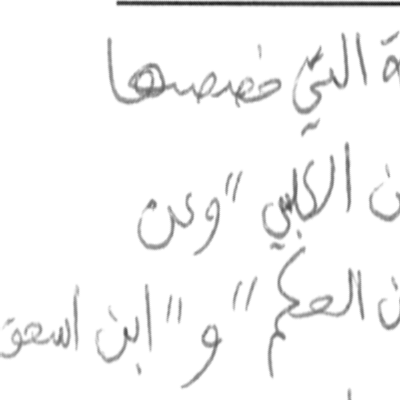 ة التي خصصها
ن الكلبي" وعن
ن الحكم" و"ابن اسحق